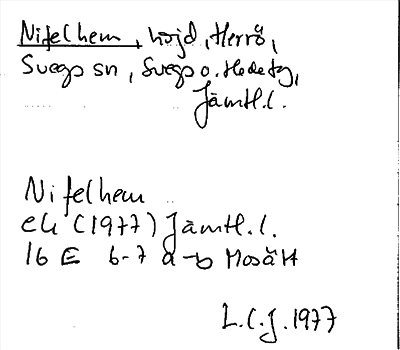 Nifelhem, höjd, Herrö,
Svegs sn, Svegs o. Hede tg,
Jämtl.l.
Nifelhem
ek (1977) Jämtl.l.
16 E 6-7 a-b Mosätt
L.C.J. 1977